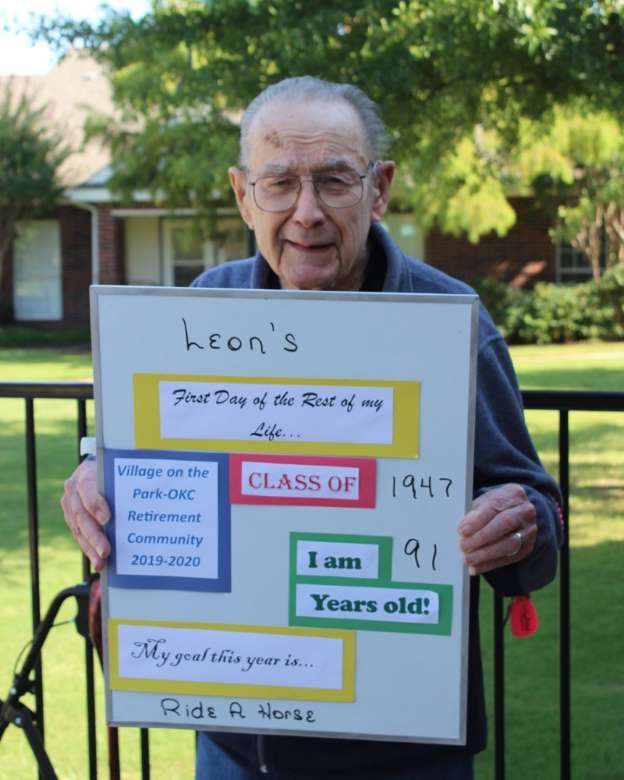 Leon's
First Day of the Rest of my
Life...
Village on the
Park-OKC
Retirement
Community
2019-2020
CLASS OF 1947
I am 91
Years old!
My goal this year is...
Ride A Horse